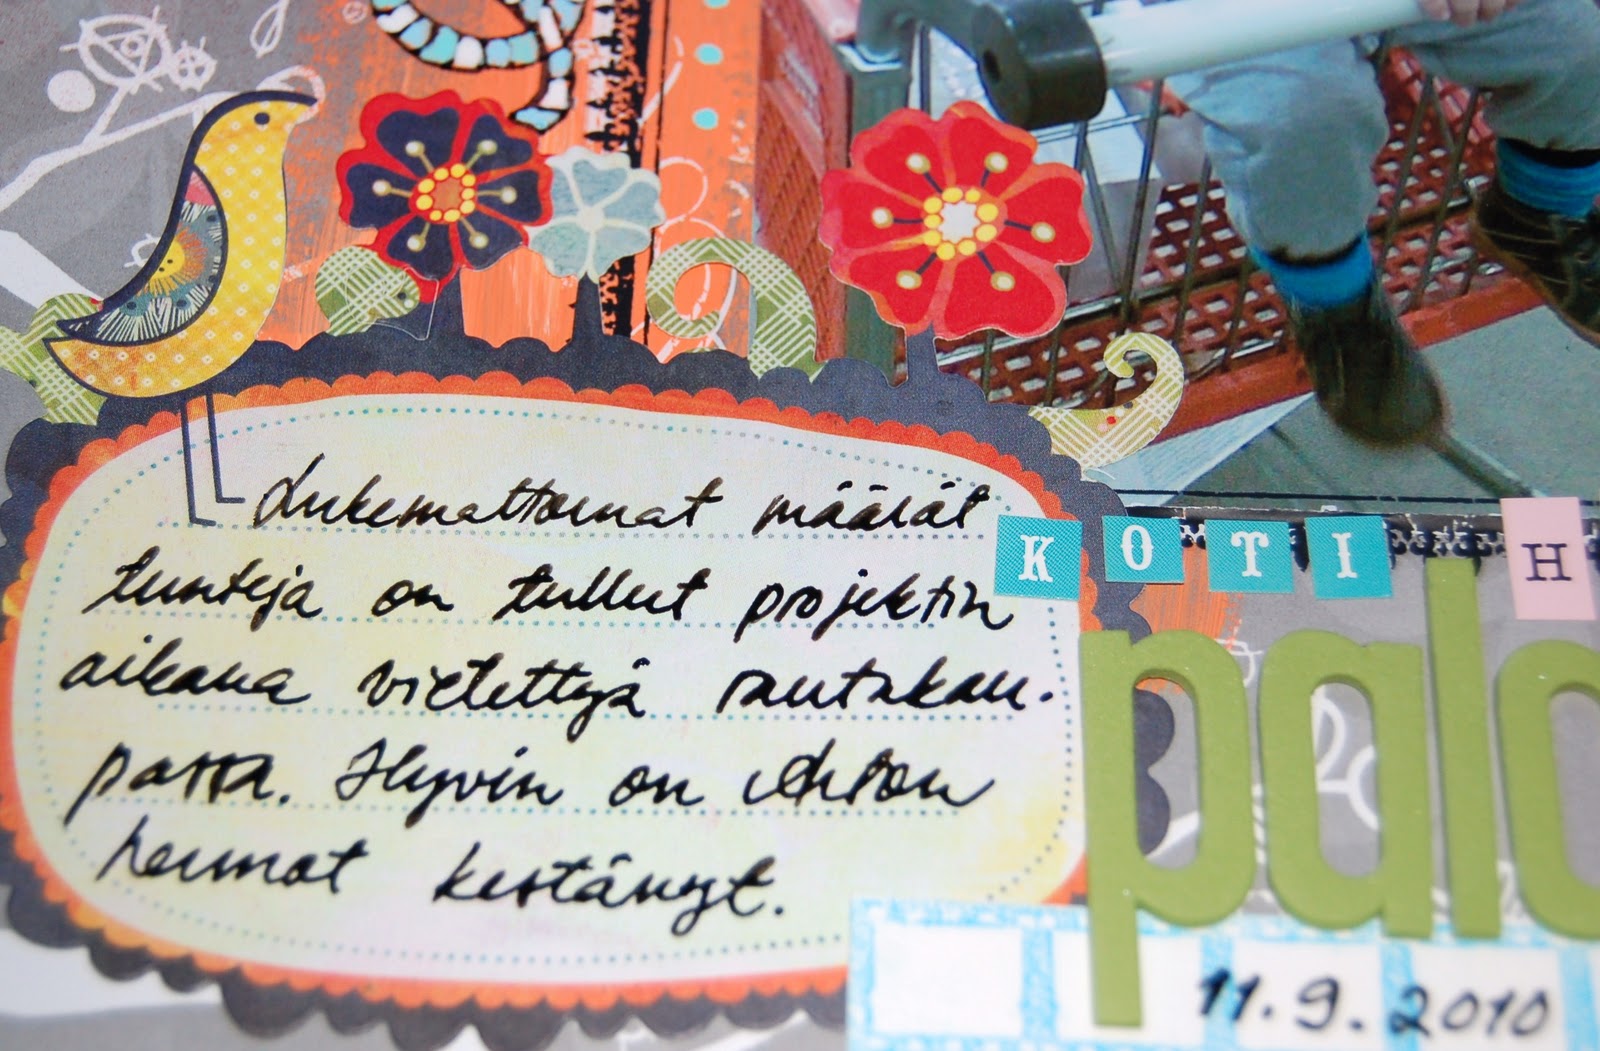 Lukemattomat määrät
tunteja on tullut projektin
aikana vietettyä rautakau-
passa. Hyvin on Ahdon
hermot kestänyt.
KOTI H
palo
11.9.2010